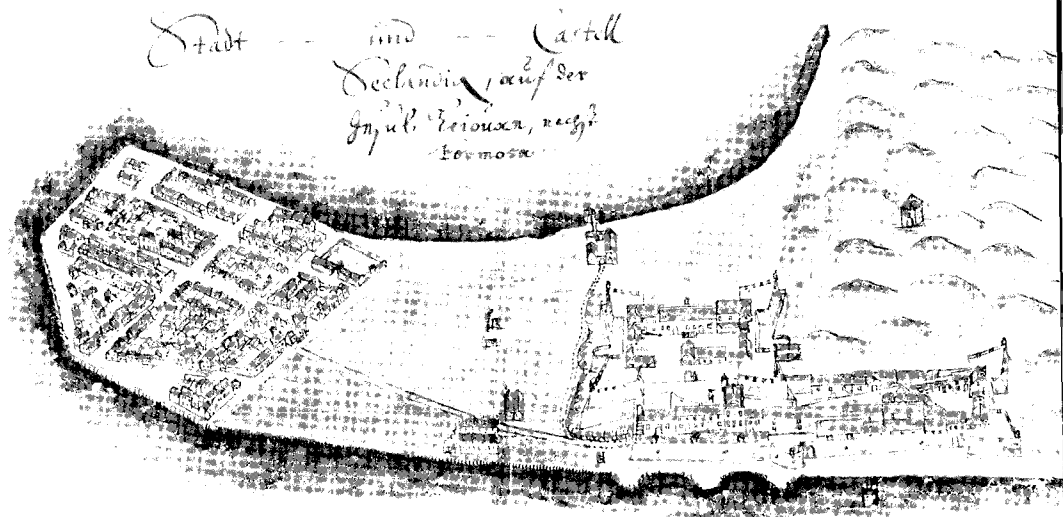 Stadt -- und -- Castell
Seelandia, auf der
Insul Teiouan, nechst
Formosa